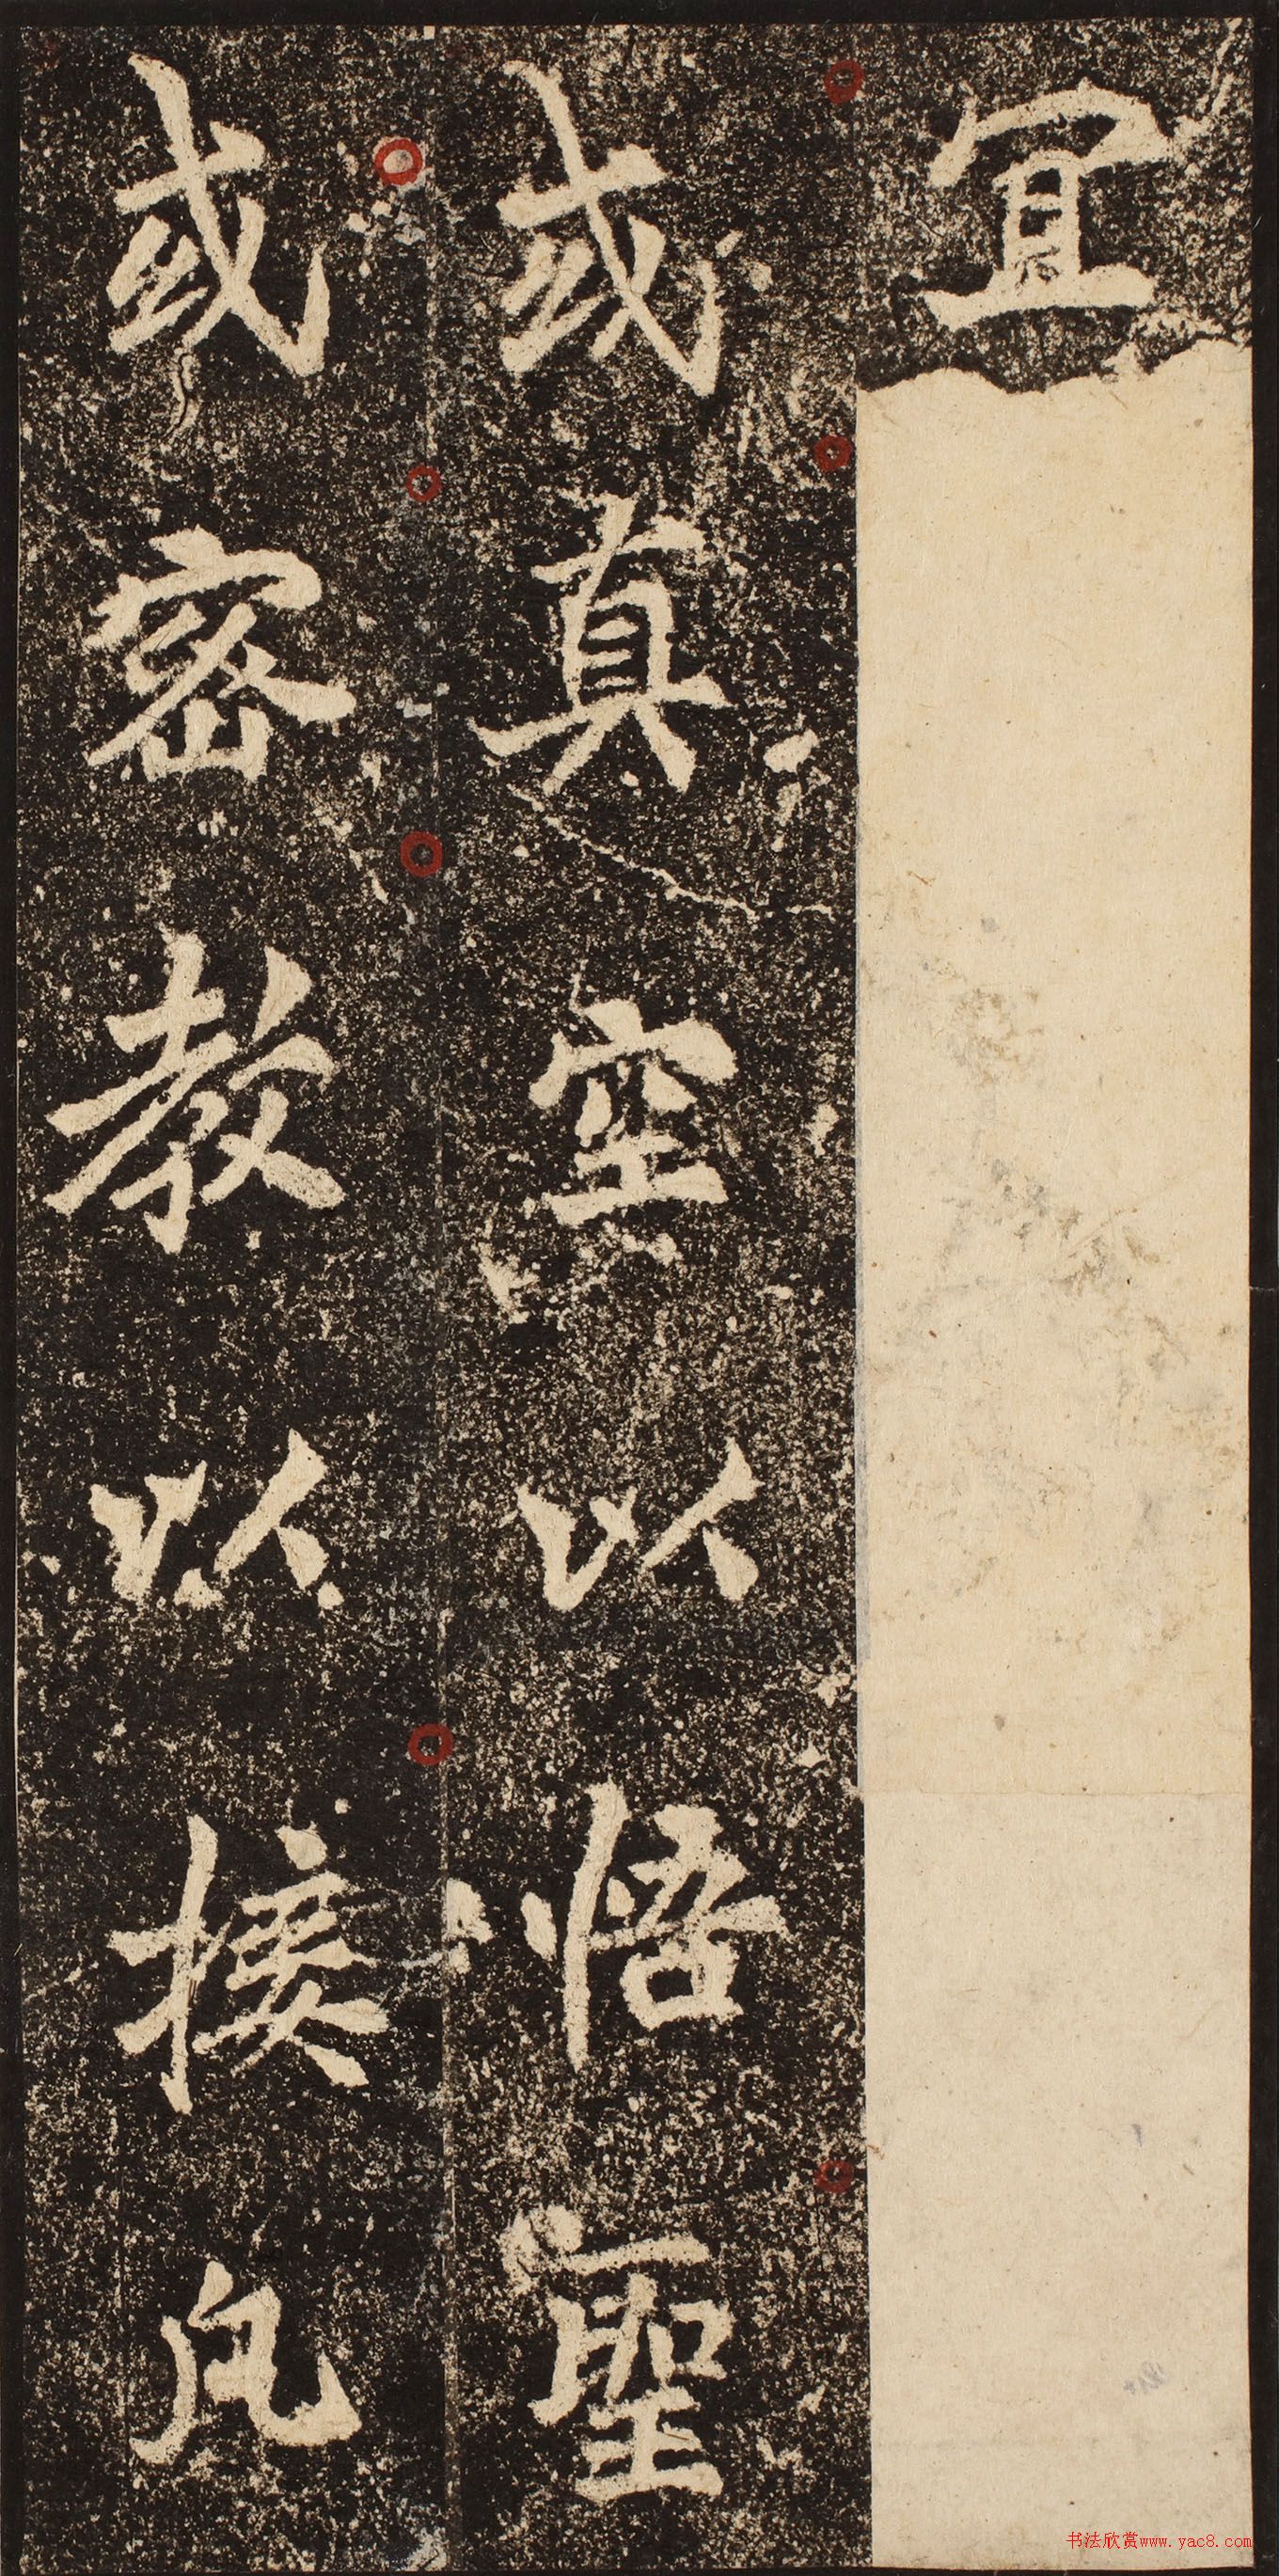 宜
或真空以悟聖
或密教以接凡
书法欣赏www.yac8.com